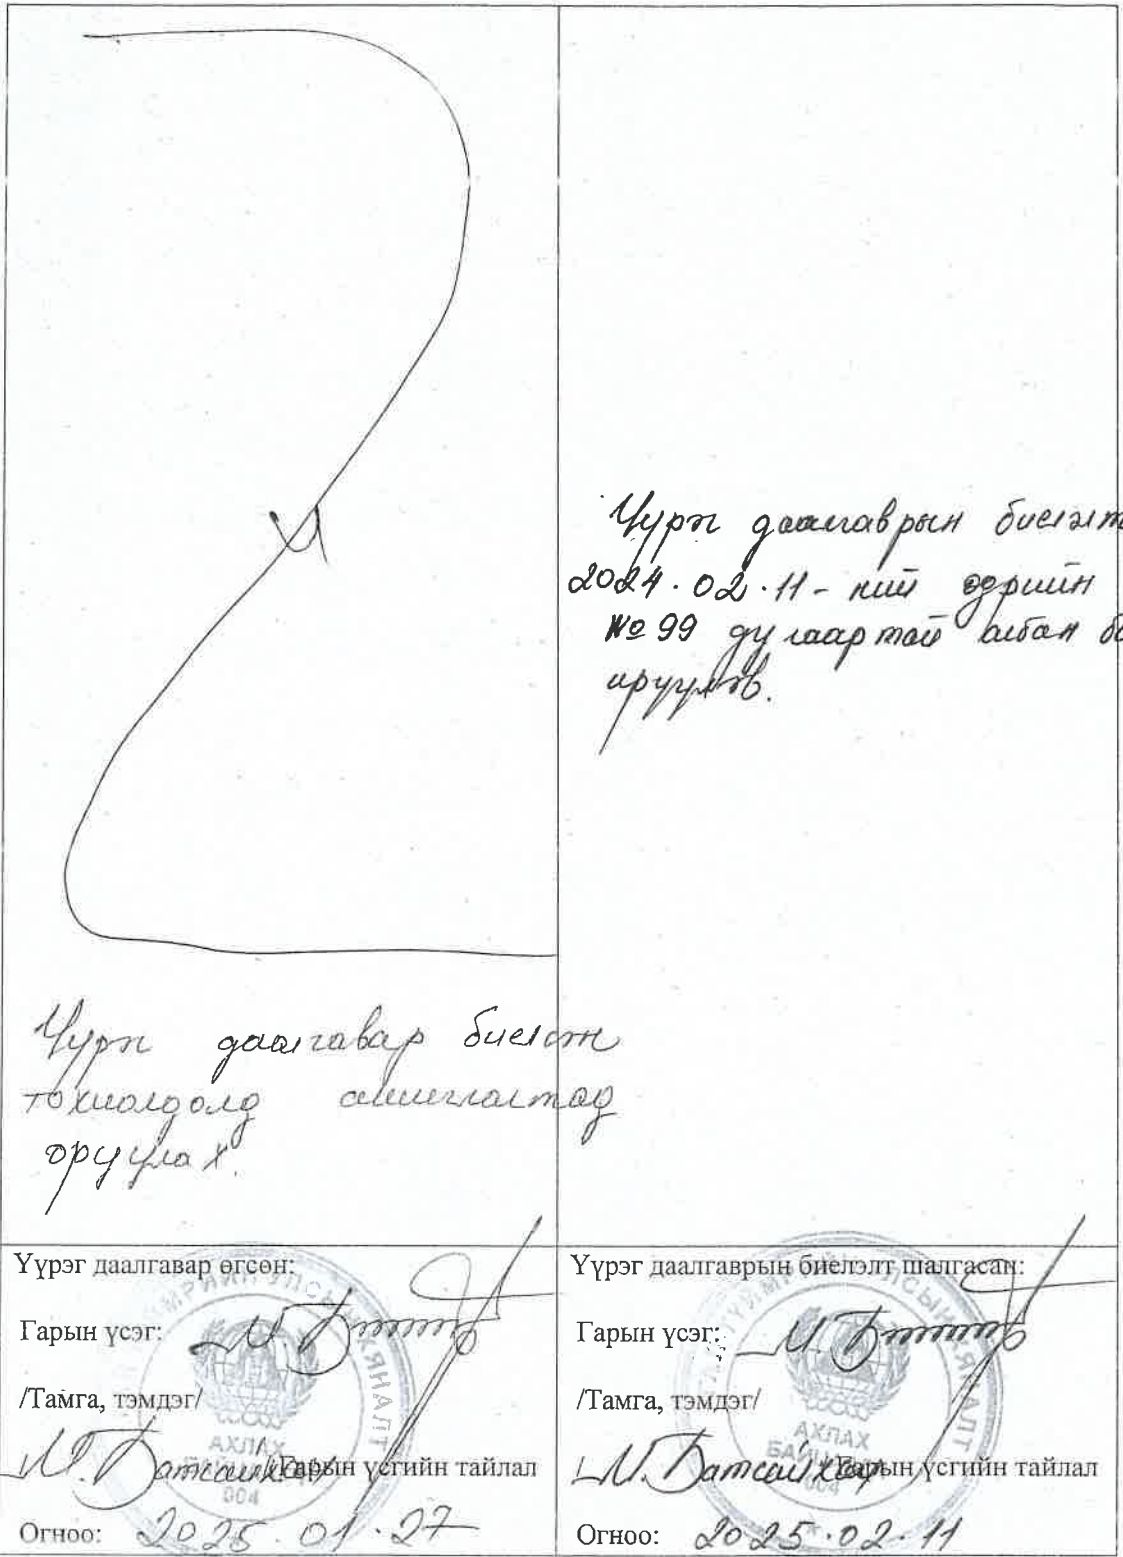 Үүрэг даалгаврын биелэлт
2024.02.11-ний өдрийн
№ 99 дугаартай албан
ирүүлэв.
Үүрэг даалгавар биелсэн
тохиолдолд ашиглалтад
оруулах.
Үүрэг даалгавар өгсөн:
Гарын үсэг:
/Тамга, тэмдэг/
Ш. Батсайхан /Гарын үсгийн тайлал
Огноо: 2025.01.27
АХЛАХ
004
ХЯНАЛТ
Үүрэг даалгаврын биелэлт шалгасан:
Гарын үсэг:
/Тамга, тэмдэг/
Ш. Батсайхан Гарын үсгийн тайлал
Огноо: 2025.02.11
АХЛАХ
004